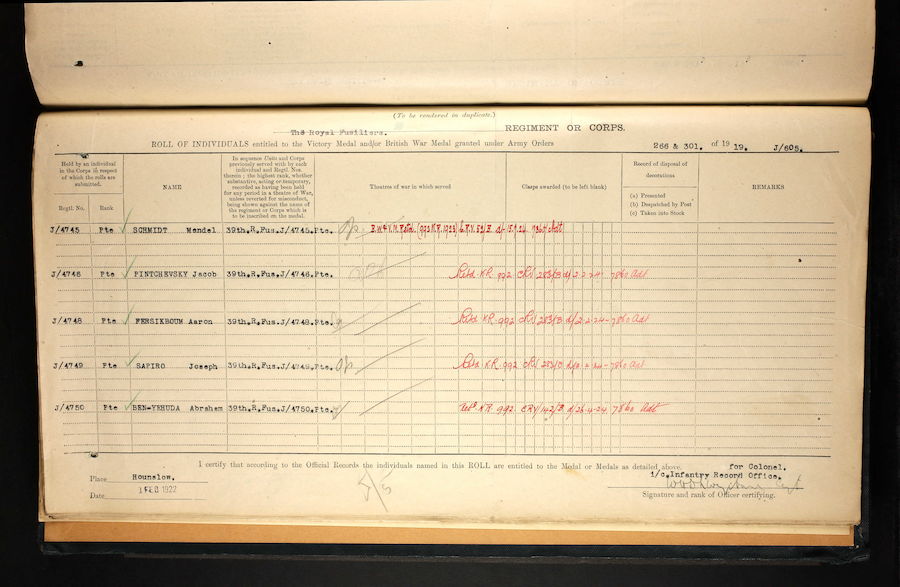 (To be rendered in duplicate.)
The Royal Fusiliers. REGIMENT OR CORPS.
ROLL OF INDIVIDUALS entitled to the Victory Medal and/or British War Medal granted under Army Orders 266 & 301. of 19 19. J/605.
Held by an individual
in the Corps in respect
of which the rolls are
submitted.
Regtl. No.
Rank
NAME
In sequence Units and Corps
previously served with by each
individual and Regtl. Nos.
therein; the highest rank, whether
substantive, acting or temporary,
recorded as having been held
for any period in a theatre of War,
unless reverted for misconduct,
being shown against the name of
the regiment or Corps which is
to be inscribed on the medal.
Theatres of war in which served
Clasps awarded (to be left blank)
Record of disposal of
decorations
(a) Presented
(b) Despatched by Post
(c) Taken into Stock
REMARKS
J/4745 Pte SCHMIDT Mendel 39th.R.Fus.J/4745.Pte.
J/4746 Pte PINTCHEVSKY Jacob 39th.R.Fus.J/4746.Pte. Retd KR. 992 2.2.24 7860 Adt
J/4748 Pte FERSIKBOUM Aaron 39th.R.Fus.J/4748.Pte. Retd KR. 992 2.2.24 7860 Adt
J/4749 Pte SAPIRO Joseph 39th.R.Fus.J/4749.Pte. Retd KR. 992 7860 Adt
J/4750 Pte BEN-YEHUDA Abraham 39th.R.Fus.J/4750.Pte. KR. 992. CRV/142/B d/26.4.24. 7860 Adt
I certify that according to the Official Records the individuals named in this ROLL are entitled to the Medal or Medals as detailed above.
for Colonel.
i/c.Infantry Record Office.
Place Hounslow.
Date 1 FEB 1922
Signature and rank of Officer certifying.